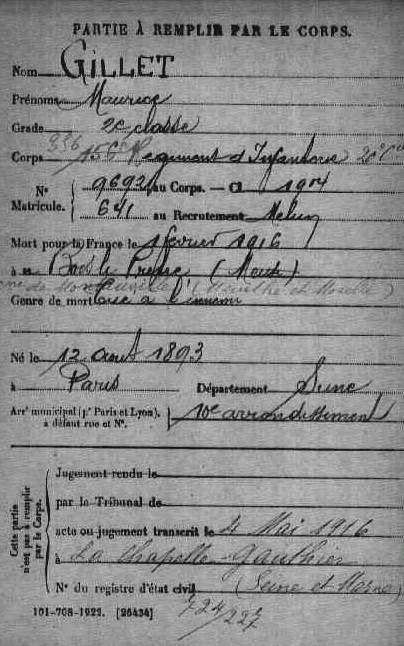 PARTIE À REMPLIR PAR LE CORPS.
Nom GILLET
Prénoms Maurice
Grade 2e classe
Corps 156e Régiment d'Infanterie 20e Cie
N° Matricule. 9692 au Corps. — Cl 1914
641 au Recrutement Melun
Mort pour la France le 1 février 1916
à Bois le Prêtre (Meuse)
(Meurthe et Moselle)
Genre de mort Tué à l'ennemi
Né le 12 aout 1893
à Paris Département Seine
Arrt municipal (pr Paris et Lyon), à défaut rue et N°. 10e arrondissement
Cette partie n'est pas à remplir par le Corps.
Jugement rendu le
par le Tribunal de
acte ou jugement transcrit le 4 Mai 1916
à La Chapelle-Gauthier
N° du registre d'état civil (Seine et Marne)
101-708-1922. [26434] 724/227